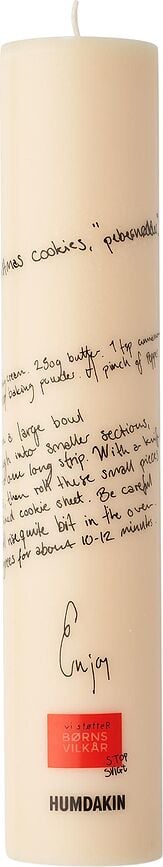 tmas cookies," pebernødder
cream. 250g butter. 1 tsp
baking powder. A pinch of
a large bowl
gh into smaller sections,
one long strip. With a
then roll these small pieces
d cookie sheet. Be careful
rise quite bit in the oven.
rees for about 10-12 minutes
Enjoy
vi støtteR
BØRNS
VILKÅR
STOP
SVIGT
HUMDAKIN